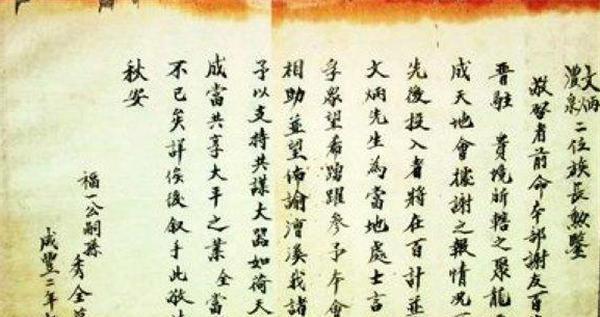 文炳
濃泉 二位族長勲鑒
敬啓者前命本部謝友百
晋駐 貴境所轄之聚龍
成天地會據謝之報情況
先後投入者將在百計並
文炳先生為當地處士言
孚眾望希踴躍參予本會
相助並望佈諭漕溪我諸
予以支持共謀大器如荷天
成當共享太平之業全當
不已矣詳俟後叙手此敬
秋安
福一公嗣孫 秀全
咸豐二年